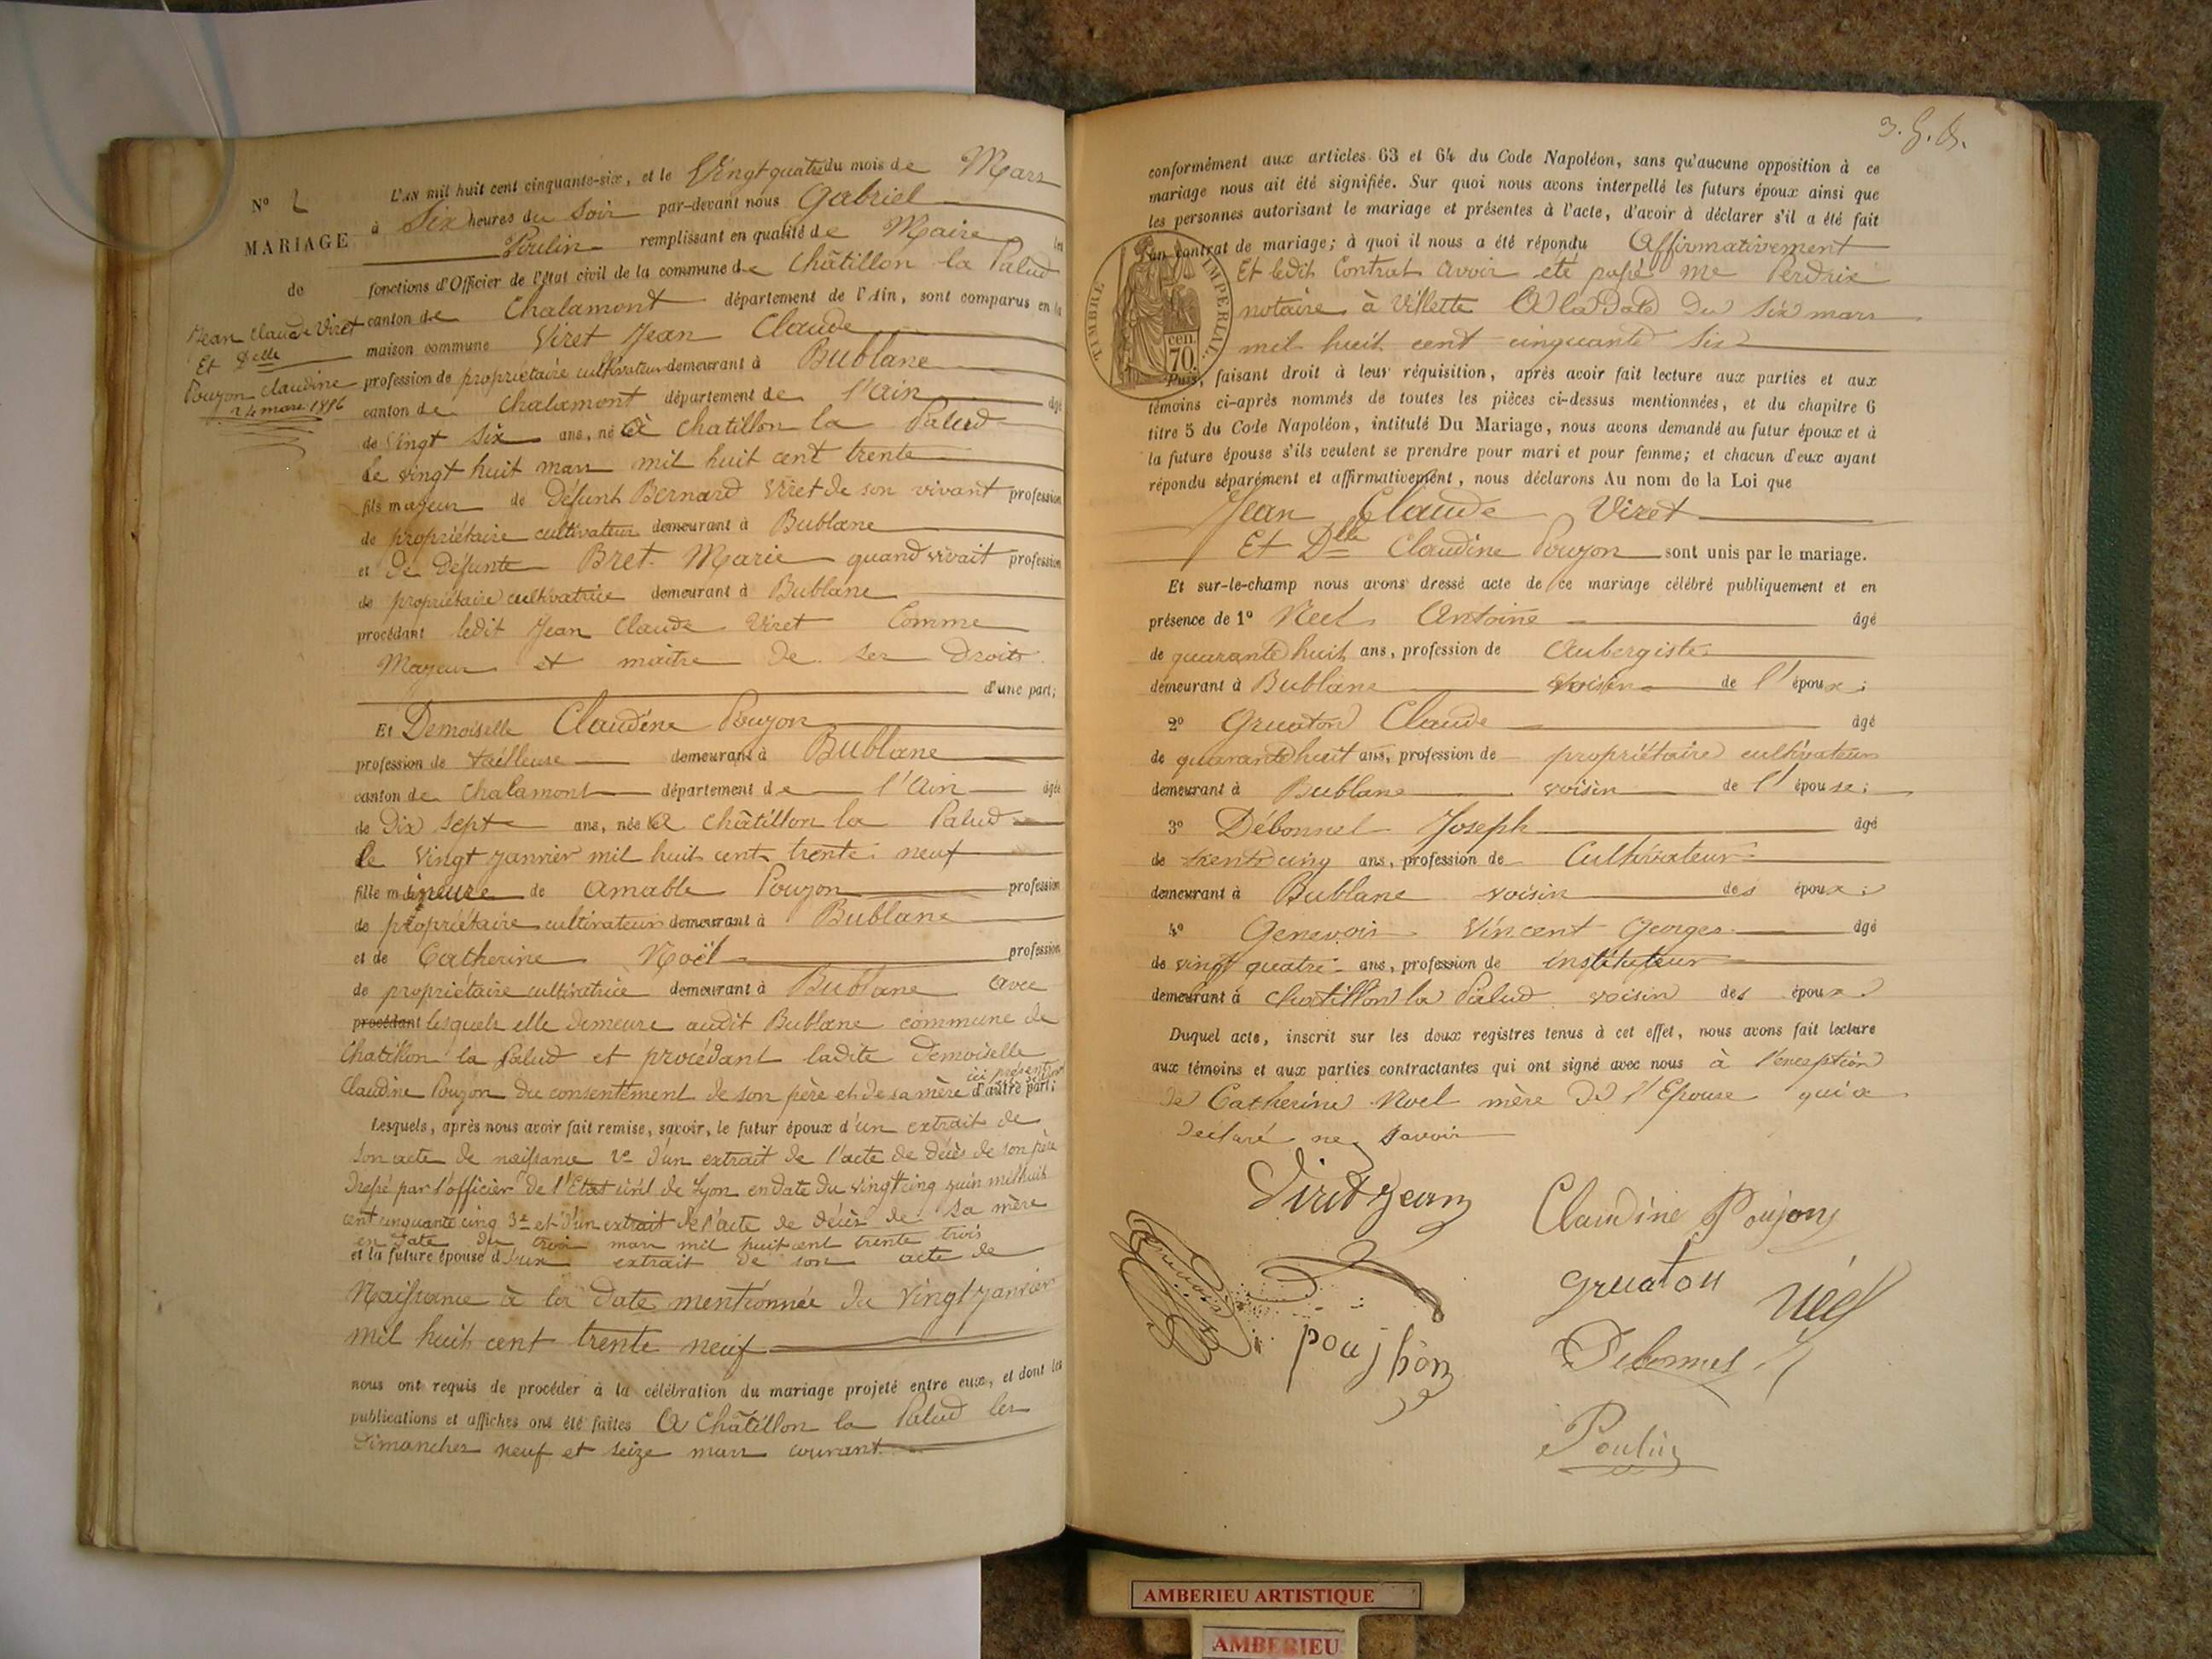 N° 2
MARIAGE
de
Jean Claude Viret
Et Delle
Poujon Claudine
24 mars 1856
L'AN mil huit cent cinquante-six, et le Vingt quatre du mois de Mars
à Six heures du Soir par-devant nous Gabriel
Poulin remplissant en qualité de Maire les
fonctions d'Officier de l'état civil de la commune de Châtillon la Palud
canton de Chalamont département de l'Ain, sont comparus en la
maison commune Viret Jean Claude
profession de propriétaire cultivateur demeurant à Bublane
canton de Chalamont département de l'Ain âgé
de vingt six ans, né à Chatillon la Palud
le vingt huit mars mil huit cent trente
fils majeur de Défunt Bernard Viret de son vivant profession
de propriétaire cultivateur demeurant à Bublane
et de Défunte Bret Marie quand vivait profession
de propriétaire cultivatrice demeurant à Bublane
procédant ledit Jean Claude Viret Comme
Majeur et maître de ses droits
d'une part;
Et Demoiselle Claudine Poujon
profession de tailleuse demeurant à Bublane
canton de Chalamont département de l'Ain âgée
de Dix sept ans, née à Châtillon la Palud
le vingt janvier mil huit cent trente neuf
fille mineure de Amable Poujon profession
de propriétaire cultivateur demeurant à Bublane
et de Catherine Noël profession
de propriétaire cultivatrice demeurant à Bublane avec
procédant lesquels elle demeure audit Bublane commune de
Chatillon la Palud et procédant ladite demoiselle
Claudine Poujon du consentement de son père et de sa mère ici présents d'autre part;
Lesquels, après nous avoir fait remise, savoir, le futur époux d'un extrait de
son acte de naissance 2° d'un extrait de l'acte de décès de son père
dressé par l'officier de l'Etat civil de Lyon en date du vingt cinq juin mil huit
cent cinquante cinq 3° et d'un extrait de l'acte de décès de sa mère
en date du trois mars mil huit cent trente trois
et la future épouse d'un extrait de son acte de
Naissance à la date mentionnée du vingt janvier
mil huit cent trente neuf
nous ont requis de procéder à la célébration du mariage projeté entre eux, et dont les
publications et affiches ont été faites à Châtillon la Palud les
dimanches neuf et seize mars courant
conformément aux articles 63 et 64 du Code Napoléon, sans qu'aucune opposition à ce
mariage nous ait été signifiée. Sur quoi nous avons interpellé les futurs époux ainsi que
les personnes autorisant le mariage et présentes à l'acte, d'avoir à déclarer s'il a été fait
un contrat de mariage; à quoi il nous a été répondu Affirmativement
Et ledit Contrat avoir été passé Me Perdrix
notaire à Villette à la date du six mars
mil huit cent cinquante six
TIMBRE IMPERIAL
70 cen.
Puis, faisant droit à leur réquisition, après avoir fait lecture aux parties et aux
témoins ci-après nommés de toutes les pièces ci-dessus mentionnées, et du chapitre 6
titre 5 du Code Napoléon, intitulé Du Mariage, nous avons demandé au futur époux et à
la future épouse s'ils veulent se prendre pour mari et pour femme; et chacun d'eux ayant
répondu séparément et affirmativement, nous déclarons Au nom de la Loi que
Jean Claude Viret
Et Delle Claudine Poujon sont unis par le mariage.
Et sur-le-champ nous avons dressé acte de ce mariage célébré publiquement et en
présence de 1° Néel Antoine âgé
de quarante huit ans, profession de Aubergiste
demeurant à Bublane voisin de l'époux;
2° Gruaton Claude âgé
de quarante huit ans, profession de propriétaire cultivateur
demeurant à Bublane voisin de l'épouse;
3° Débonnel Joseph âgé
de trente cinq ans, profession de Cultivateur
demeurant à Bublane voisin des époux;
4° Genevois Vincent Georges âgé
de vingt quatre ans, profession de instituteur
demeurant à Chatillon la Palud voisin des époux
Duquel acte, inscrit sur les doux registres tenus à cet effet, nous avons fait lecture
aux témoins et aux parties contractantes qui ont signé avec nous à l'exception
de Catherine Noel mère de l'Epouse qui a
déclaré ne savoir
Viret Jean
Claudine Poujon
Genevois
gruaton
néel
poujhon
Debonnel
Poulin
AMBERIEU ARTISTIQUE
AMBERIEU